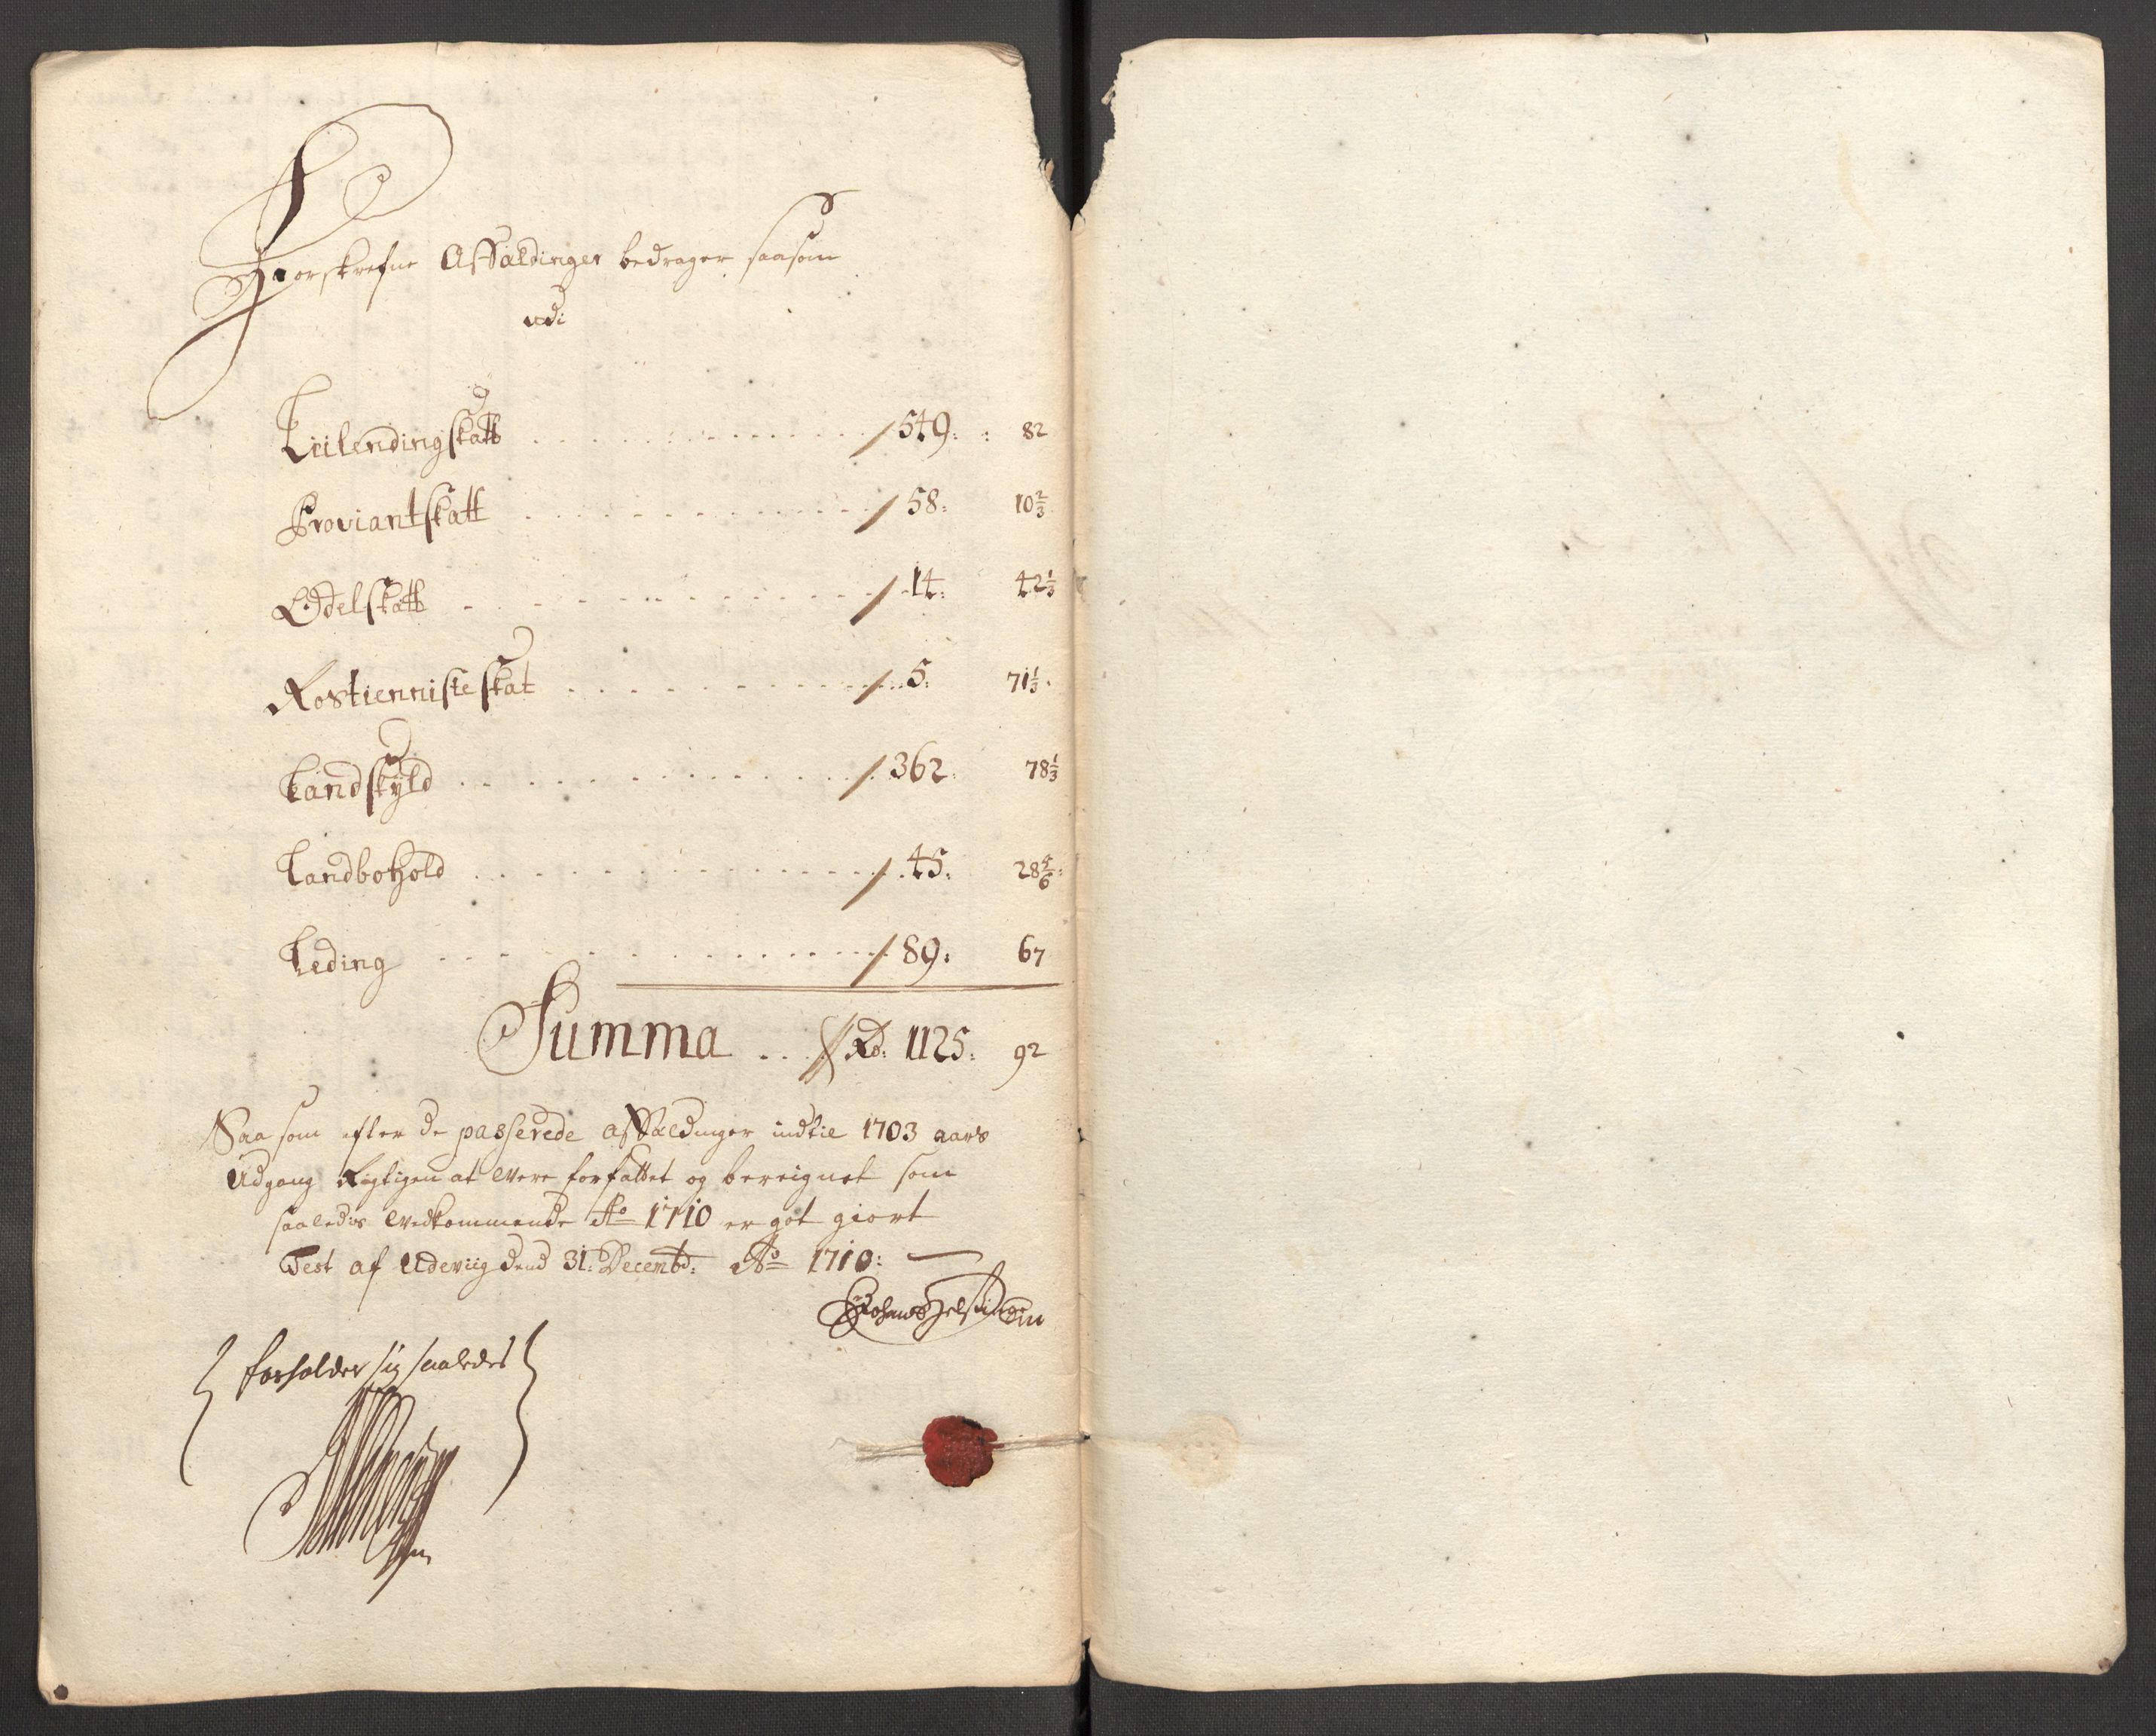 Foorskrefne Affældinger bedrager saasom
udi
Leilendingskatt / 549: : 82
Proviantskatt / 58: 10 2/3
Odelskatt / 14: 42 1/3
Rostienniste skat / 5: 71 1/3
Landskyld / 362: 78 1/3
Landbohold / 45: 28 5/6
Leding / 89: 67
Summa Rd: 1125: 92
Saa som efter de passerede affældinger indtil 1703 aars
Udgang Rigtigen at være forfattet og bereignet som
saaledis vedkommende Ao 1710 er got giort
Test af Udeviig dend 31: Decembd: Ao 1710:
{ forholder sig saaledes }